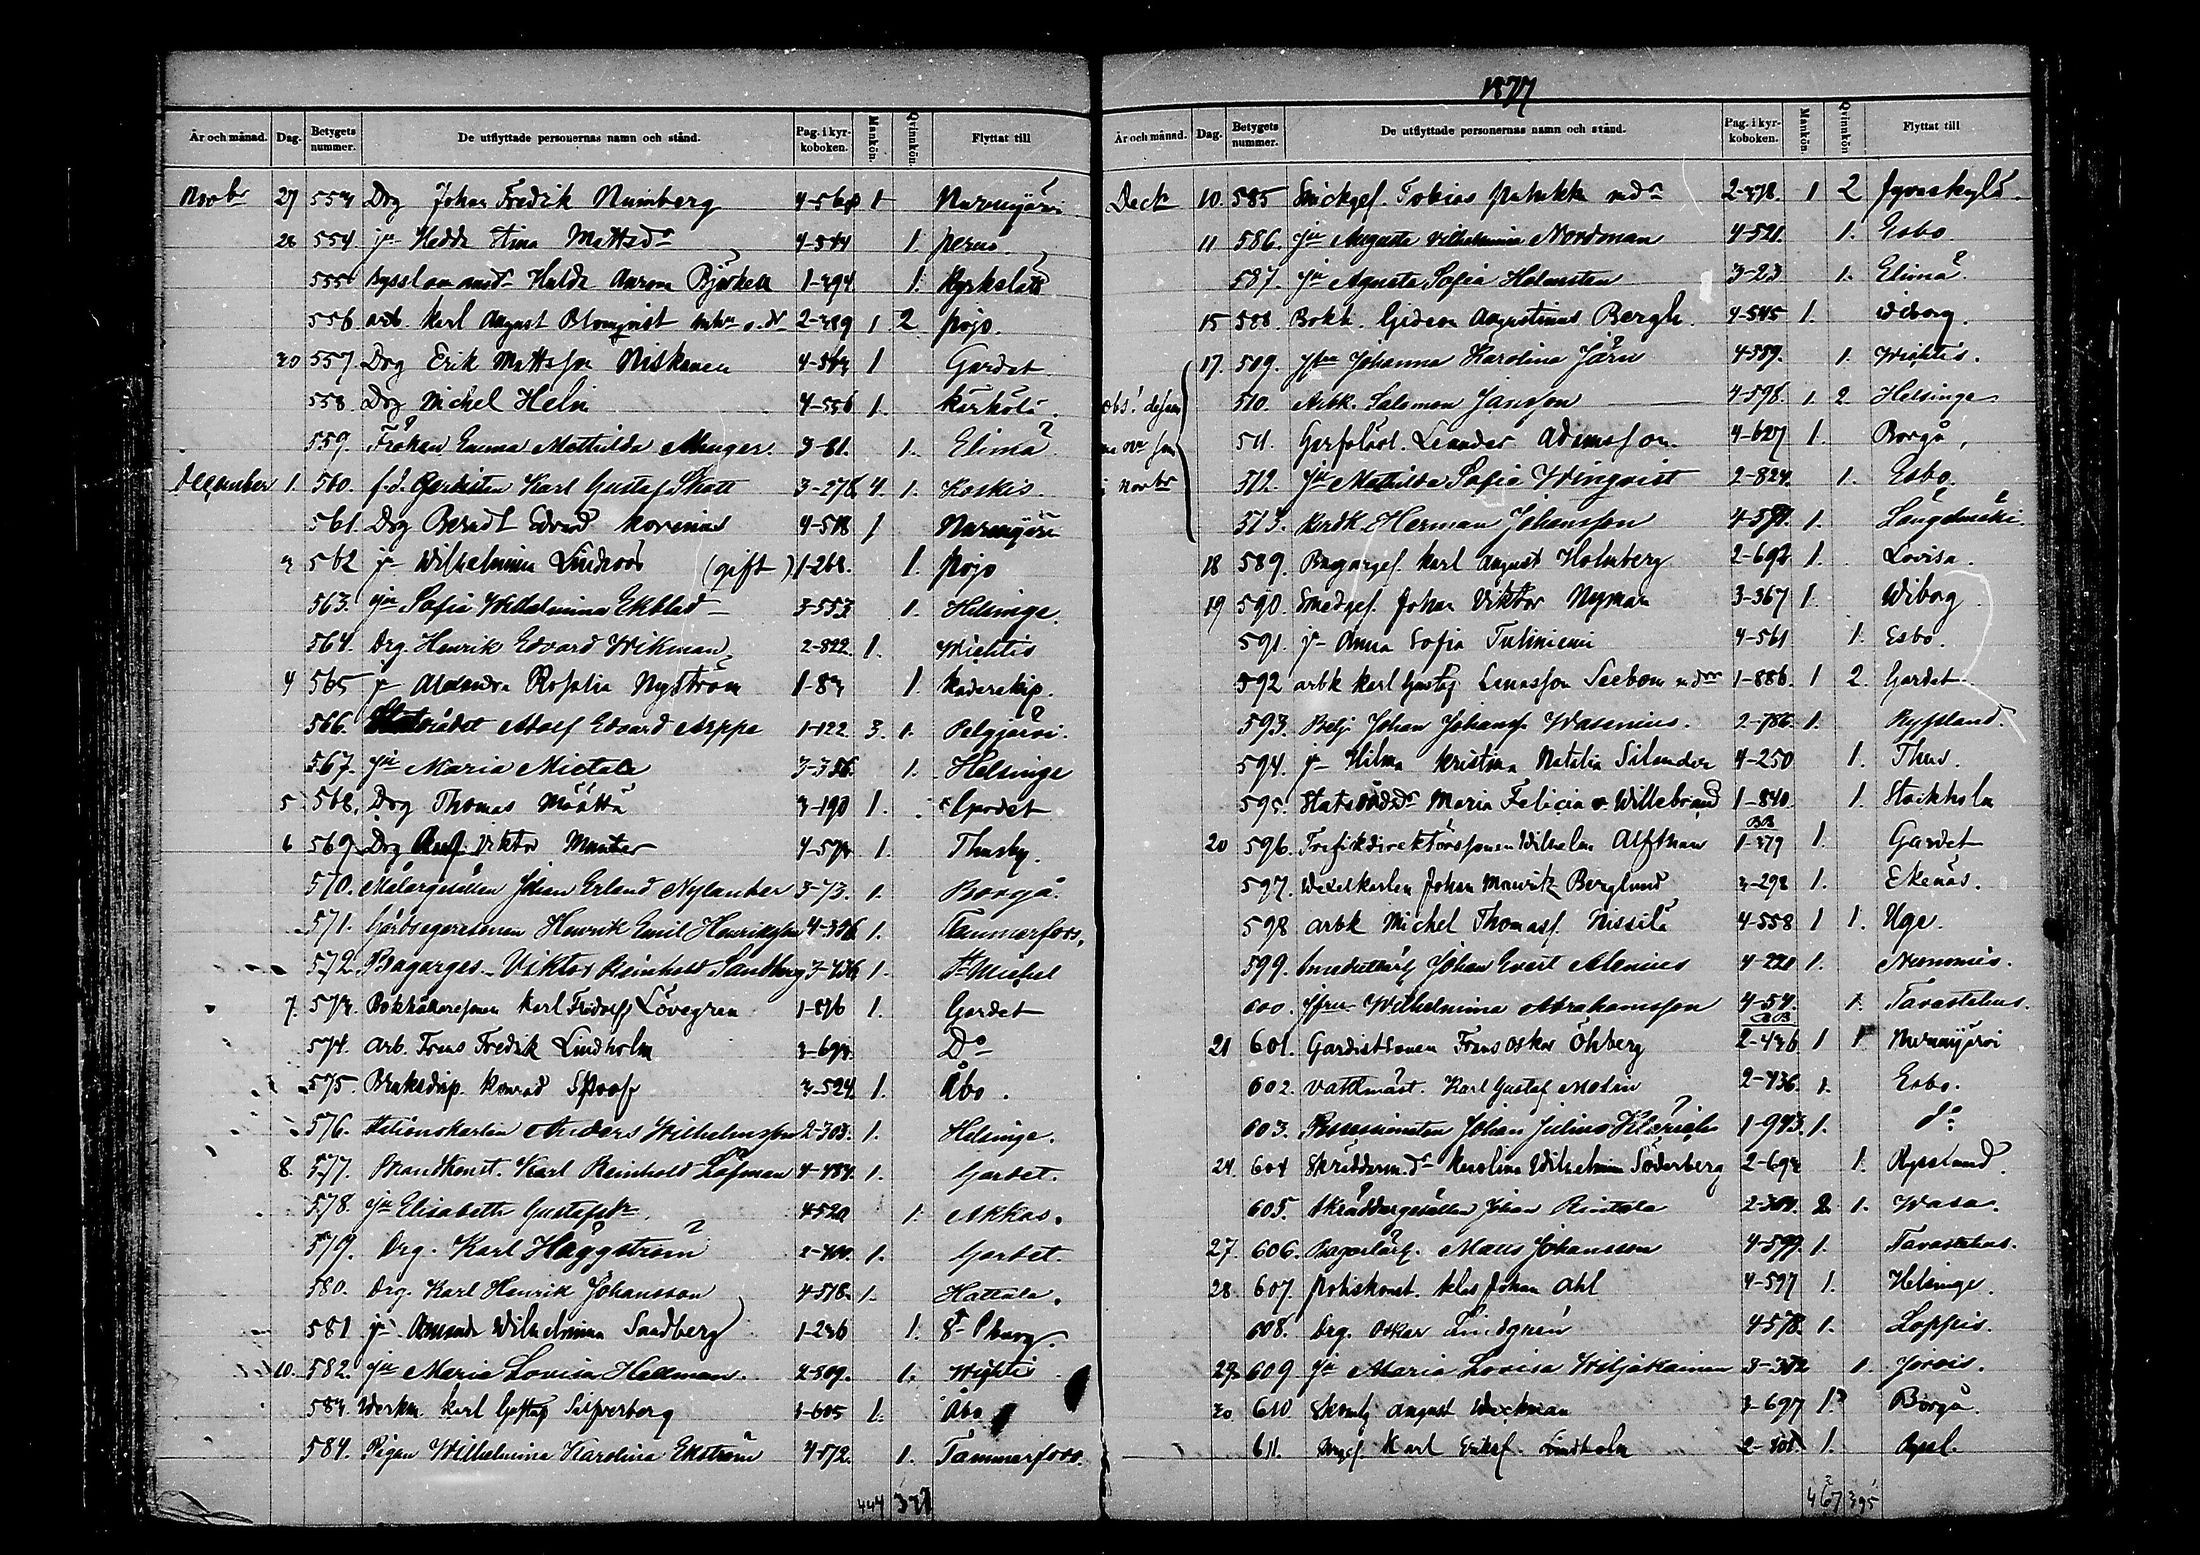 År och månad. Dag. Betygets nummer. De utflyttade personernas namn och stånd. Pag. i kyrkoboken. Mankön. Qvinnkön. Flyttat till
Novbr 27 553 Drg Johan Fredrik Numberg 4-568 1 Nurmijärvi
28 554 jr Hedda Stina Mattsdr 4-544 1. perno.
555 Hulda Aurora Björkell 1-394 1. Kyrkslätt
556 arb. Karl August Blomqvist 2-389 1 2 pojo.
30 557. Drg Erik Mattsson Niskanen 4-543 1 Gardet
558 Drg Michel Helin 4-556 1. Kärkölä.
559. Fröken Emma Mathilda Munger. 3-81. 1. Elimä
December 1. 560. f.d. Karl Gustaf Skott 3-278 4. 1. Koskis.
561. Drg Berndt Edvard 4-518 1 Nurmijärvi
3 562 jr Wilhelmina Lindroos (gift) 1-268. 1. pojo
563. jn Sofia Wilhelmina Ekblad 3-553 1. Helsinge.
564. Drg. Henrik Edvard Wikman 2-822. 1. Wichtis
4 565 jr Alexandra Rosalia Nyström 1-83 1.
566. Statsrådet Adolf Edvard Arppe 1-122 3. 1. Pelgjärvi.
567. jn Maria Mietala 3-356. 1. Helsinge
5 568. Drg Thomas Määttä 3-190 1. Gardet
6 569. Drg Viktor Munter 4-573 1. Thusby.
570. Målargesällen Johan Erland Nylander 3-73. 1. Borgå.
571. Gårdsegaresonen Henrik Emil Henriksson 4-356 1. Tammerfors,
572 Bagarges. Viktor Reinhold Sandberg 3-436 1. St Michel
7. 573. Bokhållaresonen Karl Fridolf Lövegren 1-836 1. Gardet
574. Arb. Frans Fredrik Lindholm 3-693. Do
575. Konrad Spoof 3-524 1. Åbo.
576. Stationskarlen Anders Wilhelmsson 2-303. 1. Helsinge.
8. 577. Brandkonst. Karl Reinhold Löfman 4-484. 1. Gardet.
578. jn Elisabeth Gustafsdr. 4-520 1. Akkas.
579. Drg. Karl Häggström 1. Gardet.
580. Drg. Karl Henrik Johansson 4-578. 1. Hattula.
581 jr Amanda Wilhelmina Sandberg 1-236 1. St Pburg.
10. 582. jn Maria Lovisa Hellman. 2-809. 1. Wichtis
583. Werkm. Karl Gustaf Silfverberg 1-605 1. Åbo
584. Pigan Wilhelmina Karolina Ekström 4-572. 1. Tammerfors.
444 391
1877
År och månad. Dag. Betygets nummer. De utflyttade personernas namn och stånd. Pag. i kyrkoboken. Mankön. Qvinnkön Flyttat till
Decbr 10. 585 Snickges. Tobias 2-378. 1 2 Jyväskylä.
11 586. jn Augusta Vilhelmina Nordman 4-521. 1. Esbo
587. jn Agusta Sofia Holmsten 3-23 1. Elimä.
15 588 Bokh. Gideon Augustinus Bergh. 4-545 1. Wiborg.
17. 509. jfrn Johanna Karolina Järn 4-559. 1. Wichtis.
obs! dessa 510. Arbk. Salomon Jansson 4-598. 1. 2 Helsinge
511. Leander Adamsson 4-627 1. Borgå,
i novbr 512. jn Mathilda Sofia Winqvist 2-824. 1. Esbo.
513. Herman Johansson 4-591. 1. Längelmäki.
18 589. Bagarges. Karl August Holmberg 2-692 1. Lovisa.
19 590. Smedges. Johan Viktor Nyman 3-367 1. Wiborg
591. jr Anna Sofia Tuliniemi 4-561 1. Esbo.
592 arbk Karl Gustaf Linasson Seebom 1-886. 1 2. Gardet.
593. Johan Johanss. Wasenius. 2-786. 1. Ryssland.
594. jr Hilma Kristina Natalia Silander 4-250 1. Thus.
595. Statsrådsdr Maria Felicia v. Willebrand 1-840. 1. Stockholm
20 596. Trafikdirektörssonen Wilhelm Alfthan BB 1-379 1. Gardet
597. Wexelkarlen Johan Mauritz Berglund 3-298 1. Ekenäs.
598 arbk Michel Thomass. Nissilä 4-558 1 1.
599. Johan Evert Alenius 4-220 1. Nummis.
600. jfrun Wilhelmina Abrahamsson 4-54. 1. Tavastehus.
21 601. Gardistsonen Frans Oskar Öhberg BB 2-436 1 1 Nurmijärvi
602. Vaktmäst. Karl Gustaf Molin 2-436. 1. Esbo.
603. Possessionaten Johan Julius 1-943. 1. do
24. 604 Skräddarm.dr Karolina Wilhelmina Söderberg 2-693 1. Ryssland.
605. Skräddargesällen Johan Rintala 2 1. Wasa.
27. 606. Bagarlärl. Matts Johansson 4-597. 1. Tavastehus.
28 607. poliskonst. Klas Johan Ahl 4-597 1. Helsinge.
608. Drg. Oskar Lindgren 4-578. 1. Loppis.
29 609 jn Maria Lovisa Wiljakainen 3-382 1. Jorois.
30 610 August Weckman 3-697 1. Borgå.
611. Karl Eriksf. Lindholm 1. Ryssl.
467 395